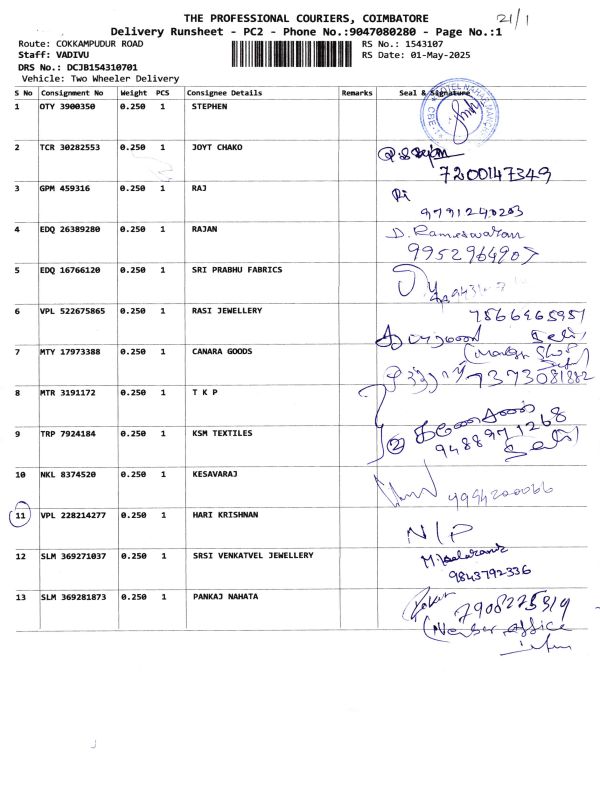 THE PROFESSIONAL COURIERS, COIMBATORE
21/1
Delivery Runsheet - PC2 - Phone No.:9047080280 - Page No.:1
Route: COKKAMPUDUR ROAD RS No.: 1543107
Staff: VADIVU RS Date: 01-May-2025
DRS No.: DCJB154310701
Vehicle: Two Wheeler Delivery
S No Consignment No Weight PCS Consignee Details Remarks Seal & Signature
1 OTY 3900350 0.250 1 STEPHEN
2 TCR 30282553 0.250 1 JOYT CHAKO
7200147349
3 GPM 459316 0.250 1 RAJ
9791290203
4 EDQ 26389280 0.250 1 RAJAN D. Rameswaran
9952964907
5 EDQ 16766120 0.250 1 SRI PRABHU FABRICS
6 VPL 522675865 0.250 1 RASI JEWELLERY
7 MTY 17973388 0.250 1 CANARA GOODS
7373081882
8 MTR 3191172 0.250 1 T K P
9 TRP 7924184 0.250 1 KSM TEXTILES
9488971268
10 NKL 8374520 0.250 1 KESAVARAJ
9994200066
11 VPL 228214277 0.250 1 HARI KRISHNAN
N/P
12 SLM 369271037 0.250 1 SRSI VENKATVEL JEWELLERY
9843792336
13 SLM 369281873 0.250 1 PANKAJ NAHATA
office